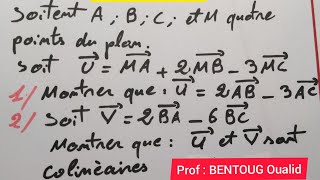 Soitent A ; B ; C ; et M quatre
points du plan.
soit \(\vec{U} = \vec{MA} + 2\vec{MB} - 3\vec{MC}\)
1/ Montrer que : \(\vec{U} = 2\vec{AB} - 3\vec{AC}\)
2/ Soit \(\vec{V} = 2\vec{BA} - 6\vec{BC}\)
Montrer que : \(\vec{U}\) et \(\vec{V}\) sont
colinéaires
Prof : BENTOUG Oualid